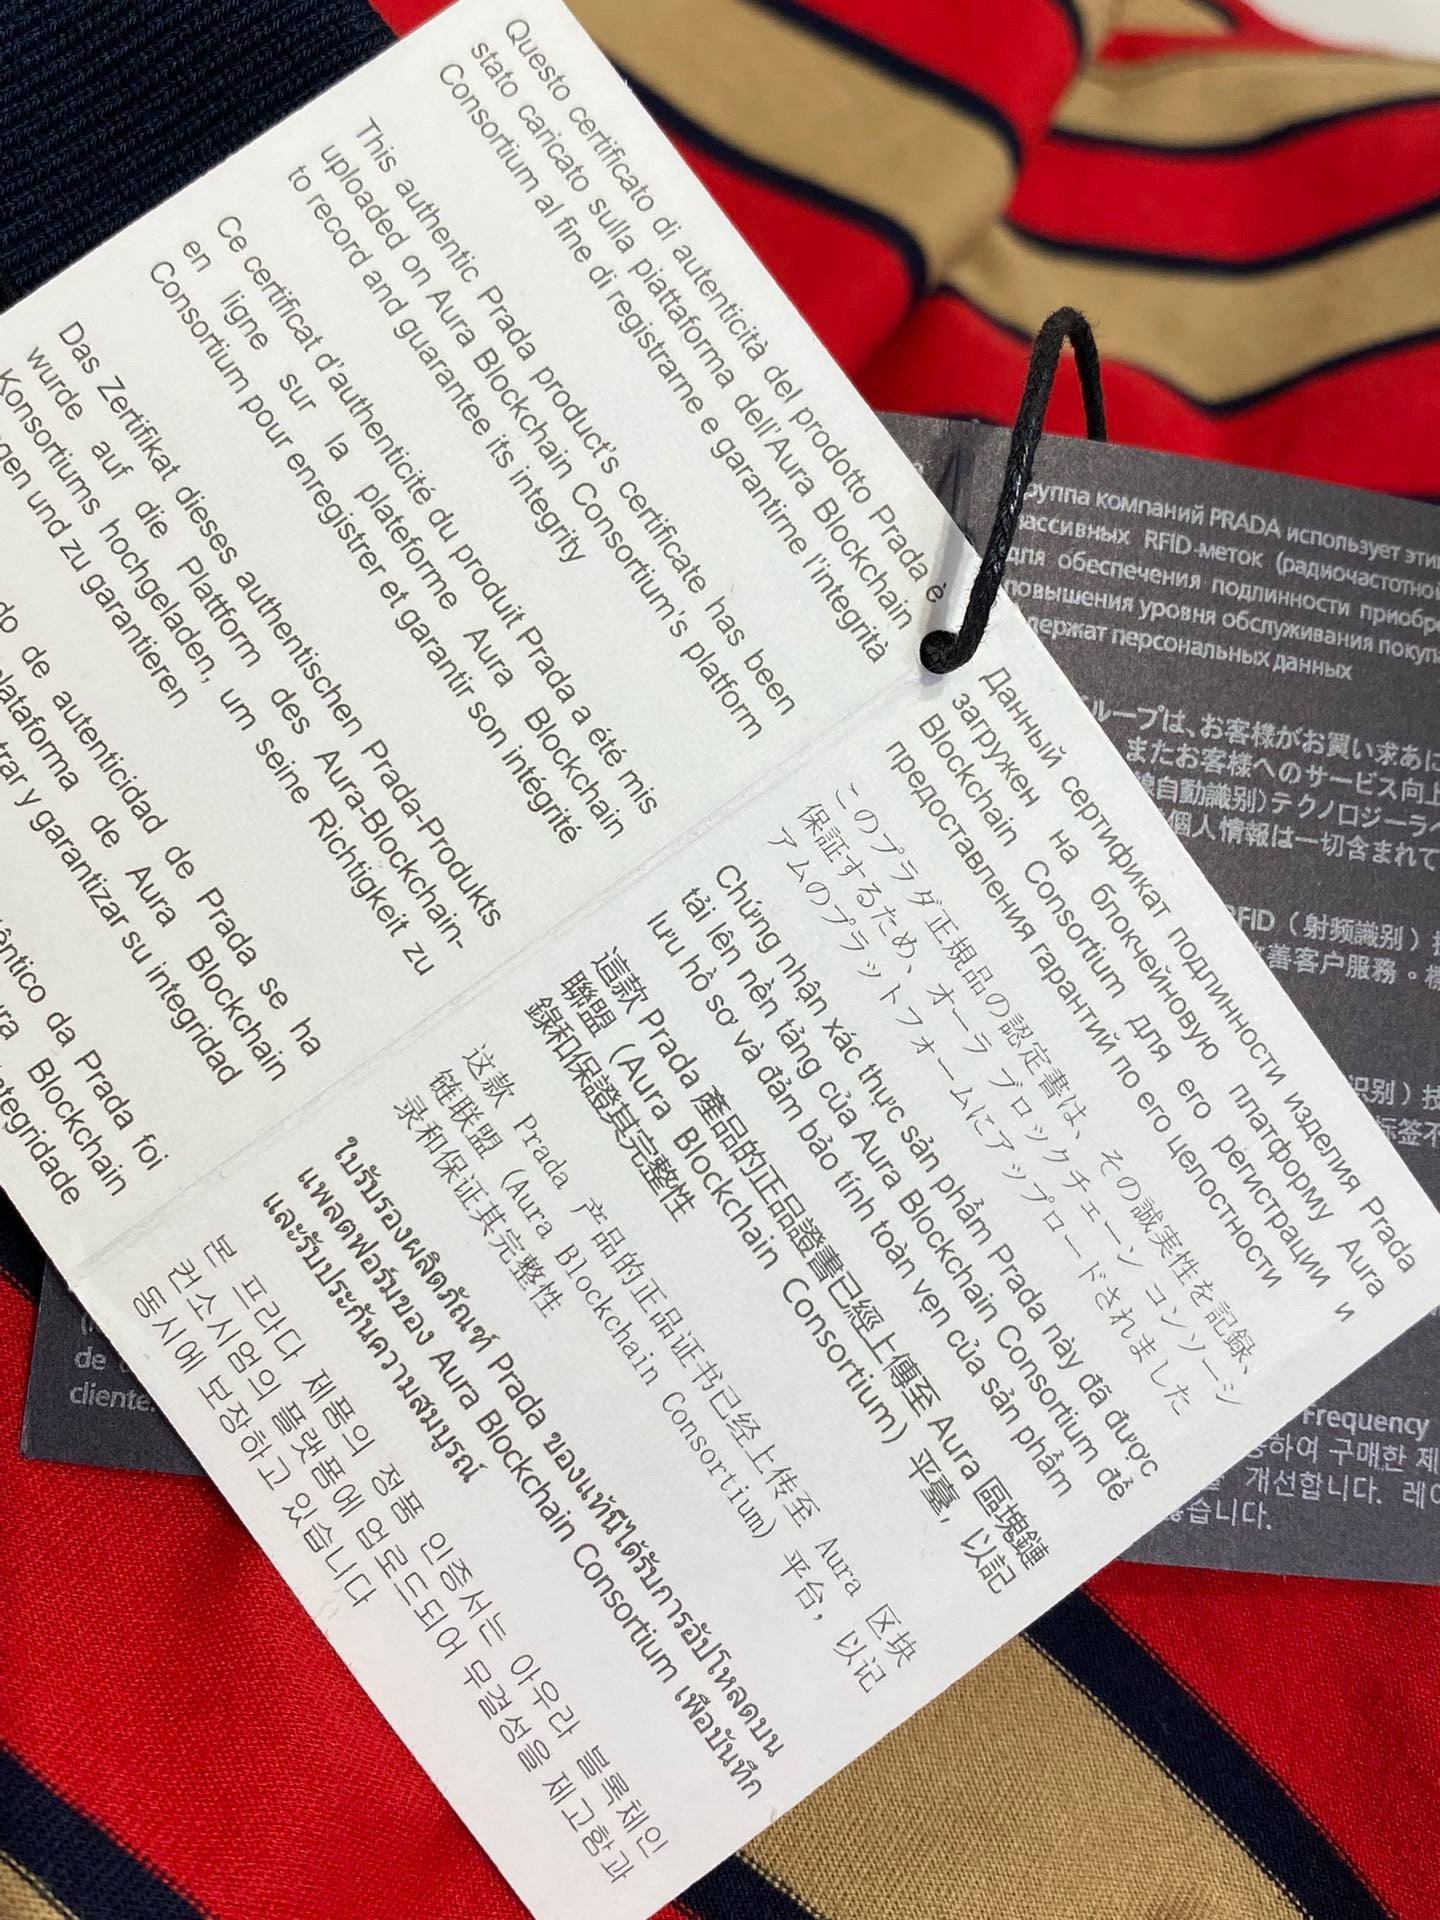 Questo certificato di autenticità del prodotto Prada è
stato caricato sulla piattaforma dell'Aura Blockchain
Consortium al fine di registrarne e garantirne l'integrità
This authentic Prada product's certificate has been
uploaded on Aura Blockchain Consortium's platform
to record and guarantee its integrity
Ce certificat d'authenticité du produit Prada a été mis
en ligne sur la plateforme Aura Blockchain
Consortium pour enregistrer et garantir son intégrité
Das Zertifikat dieses authentischen Prada-Produkts
wurde auf die Plattform des Aura-Blockchain-
Konsortiums hochgeladen, um seine Richtigkeit zu
und zu garantieren
de autenticidad de Prada se ha
de Aura Blockchain
y garantizar su integridad
da Prada foi
Blockchain
Данный сертификат подлинности изделия Prada
загружен на блокчейновую платформу Aura
Blockchain Consortium для его регистрации и
предоставления гарантий по его целостности
このプラダ正規品の認定書は、その誠実性を記録、
保証するため、オーラ ブロックチェーン コンソーシ
アムのプラットフォームにアップロードされました
Chứng nhận xác thực sản phẩm Prada này đã được
tải lên nền tảng của Aura Blockchain Consortium để
lưu hồ sơ và đảm bảo tính toàn vẹn của sản phẩm
這款 Prada 產品的正品證書已經上傳至 Aura 區塊鏈
聯盟（Aura Blockchain Consortium）平臺，以記
錄和保證其完整性
这款 Prada 产品的正品证书已经上传至 Aura 区块
链联盟（Aura Blockchain Consortium）平台，以记
录和保证其完整性
ใบรับรองผลิตภัณฑ์ Prada ของแท้นี้ได้รับการอัปโหลดบน
แพลตฟอร์มของ Aura Blockchain Consortium เพื่อบันทึก
และรับประกันความสมบูรณ์
본 프라다 제품의 정품 인증서는 아우라 블록체인
컨소시엄의 플랫폼에 업로드되어 무결성을 제고함과
동시에 보장하고 있습니다
компаний PRADA использует
RFID-меток
для обеспечения подлинности
повышения уровня обслуживания
персональных данных
ループは、お客様がお買い求め
またお客様へのサービス向上
自動識別)テクノロジー
個人情報は一切含まれて
RFID（射频識别）
善客户服務。
识别）技
标签不
de
cliente.
Frequency
하여 구매한
개선합니다.